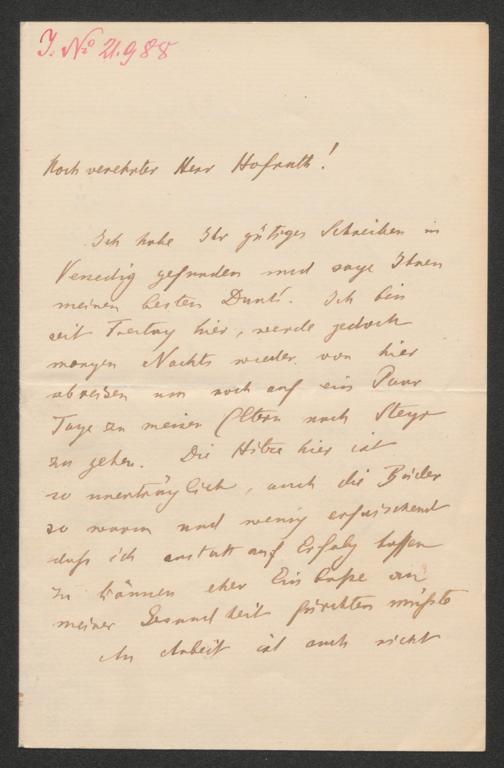 J. No 21.988
Hoch verehrter Herr Hofrath!
Ich habe Ihr gütiges Schreiben in
Venedig gefunden und sage Ihnen
meinen besten Dank! Ich bin
seit Freitag hier, werde jedoch
morgen Nachts wieder von hier
abreisen um noch auf ein Paar
Tage zu meinen Eltern nach Steyr
zu gehen. Die Hitze hier ist
so unerträglich, auch die Bäder
so warm und wenig erfrischend
daß ich anstatt auf Erfolg hoffen
zu können eher Einbuße an
meiner Gesundheit fürchten müßte
An Arbeit ist auch nicht